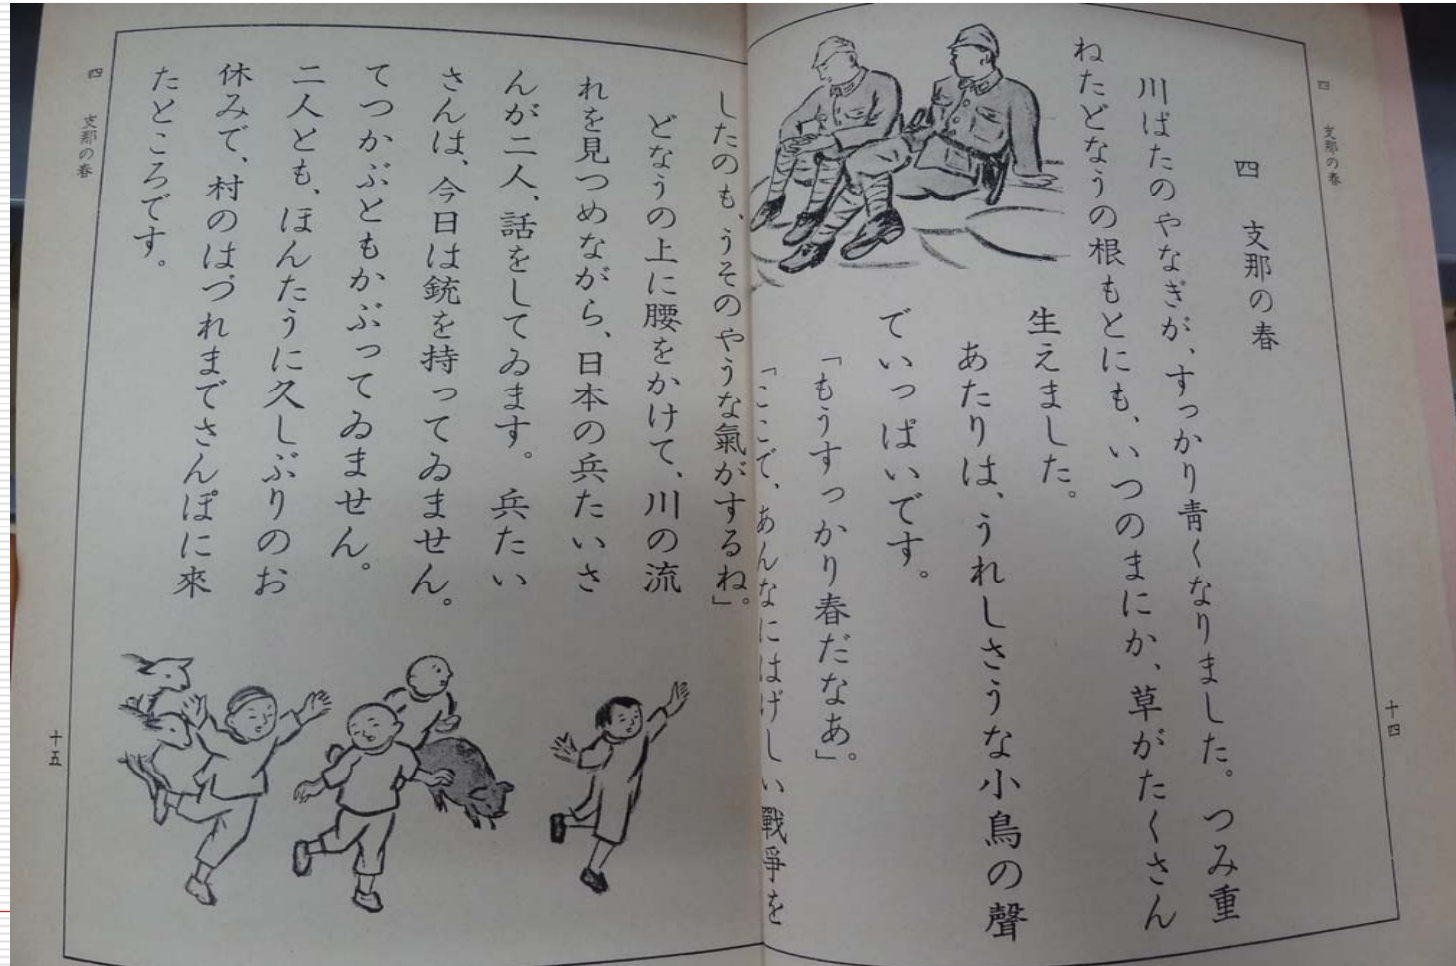 四 支那の春
四 支那の春
川ばたのやなぎが、すっかり青くなりました。つみ重
ねたどなうの根もとにも、いつのまにか、草がたくさん
生えました。
あたりは、うれしさうな小鳥の聲
でいっぱいです。
「もうすっかり春だなあ」。
「ここで、あんなにはげしい戰爭を
十四
したのも、うそのやうな氣がするね」。
どなうの上に腰をかけて、川の流
れを見つめながら、日本の兵たいさ
んが二人、話をしてゐます。兵たい
さんは、今日は銃を持ってゐません。
てつかぶともかぶってゐません。
二人とも、ほんたうに久しぶりのお
休みで、村のはづれまでさんぽに來
たところです。
四 支那の春
十五